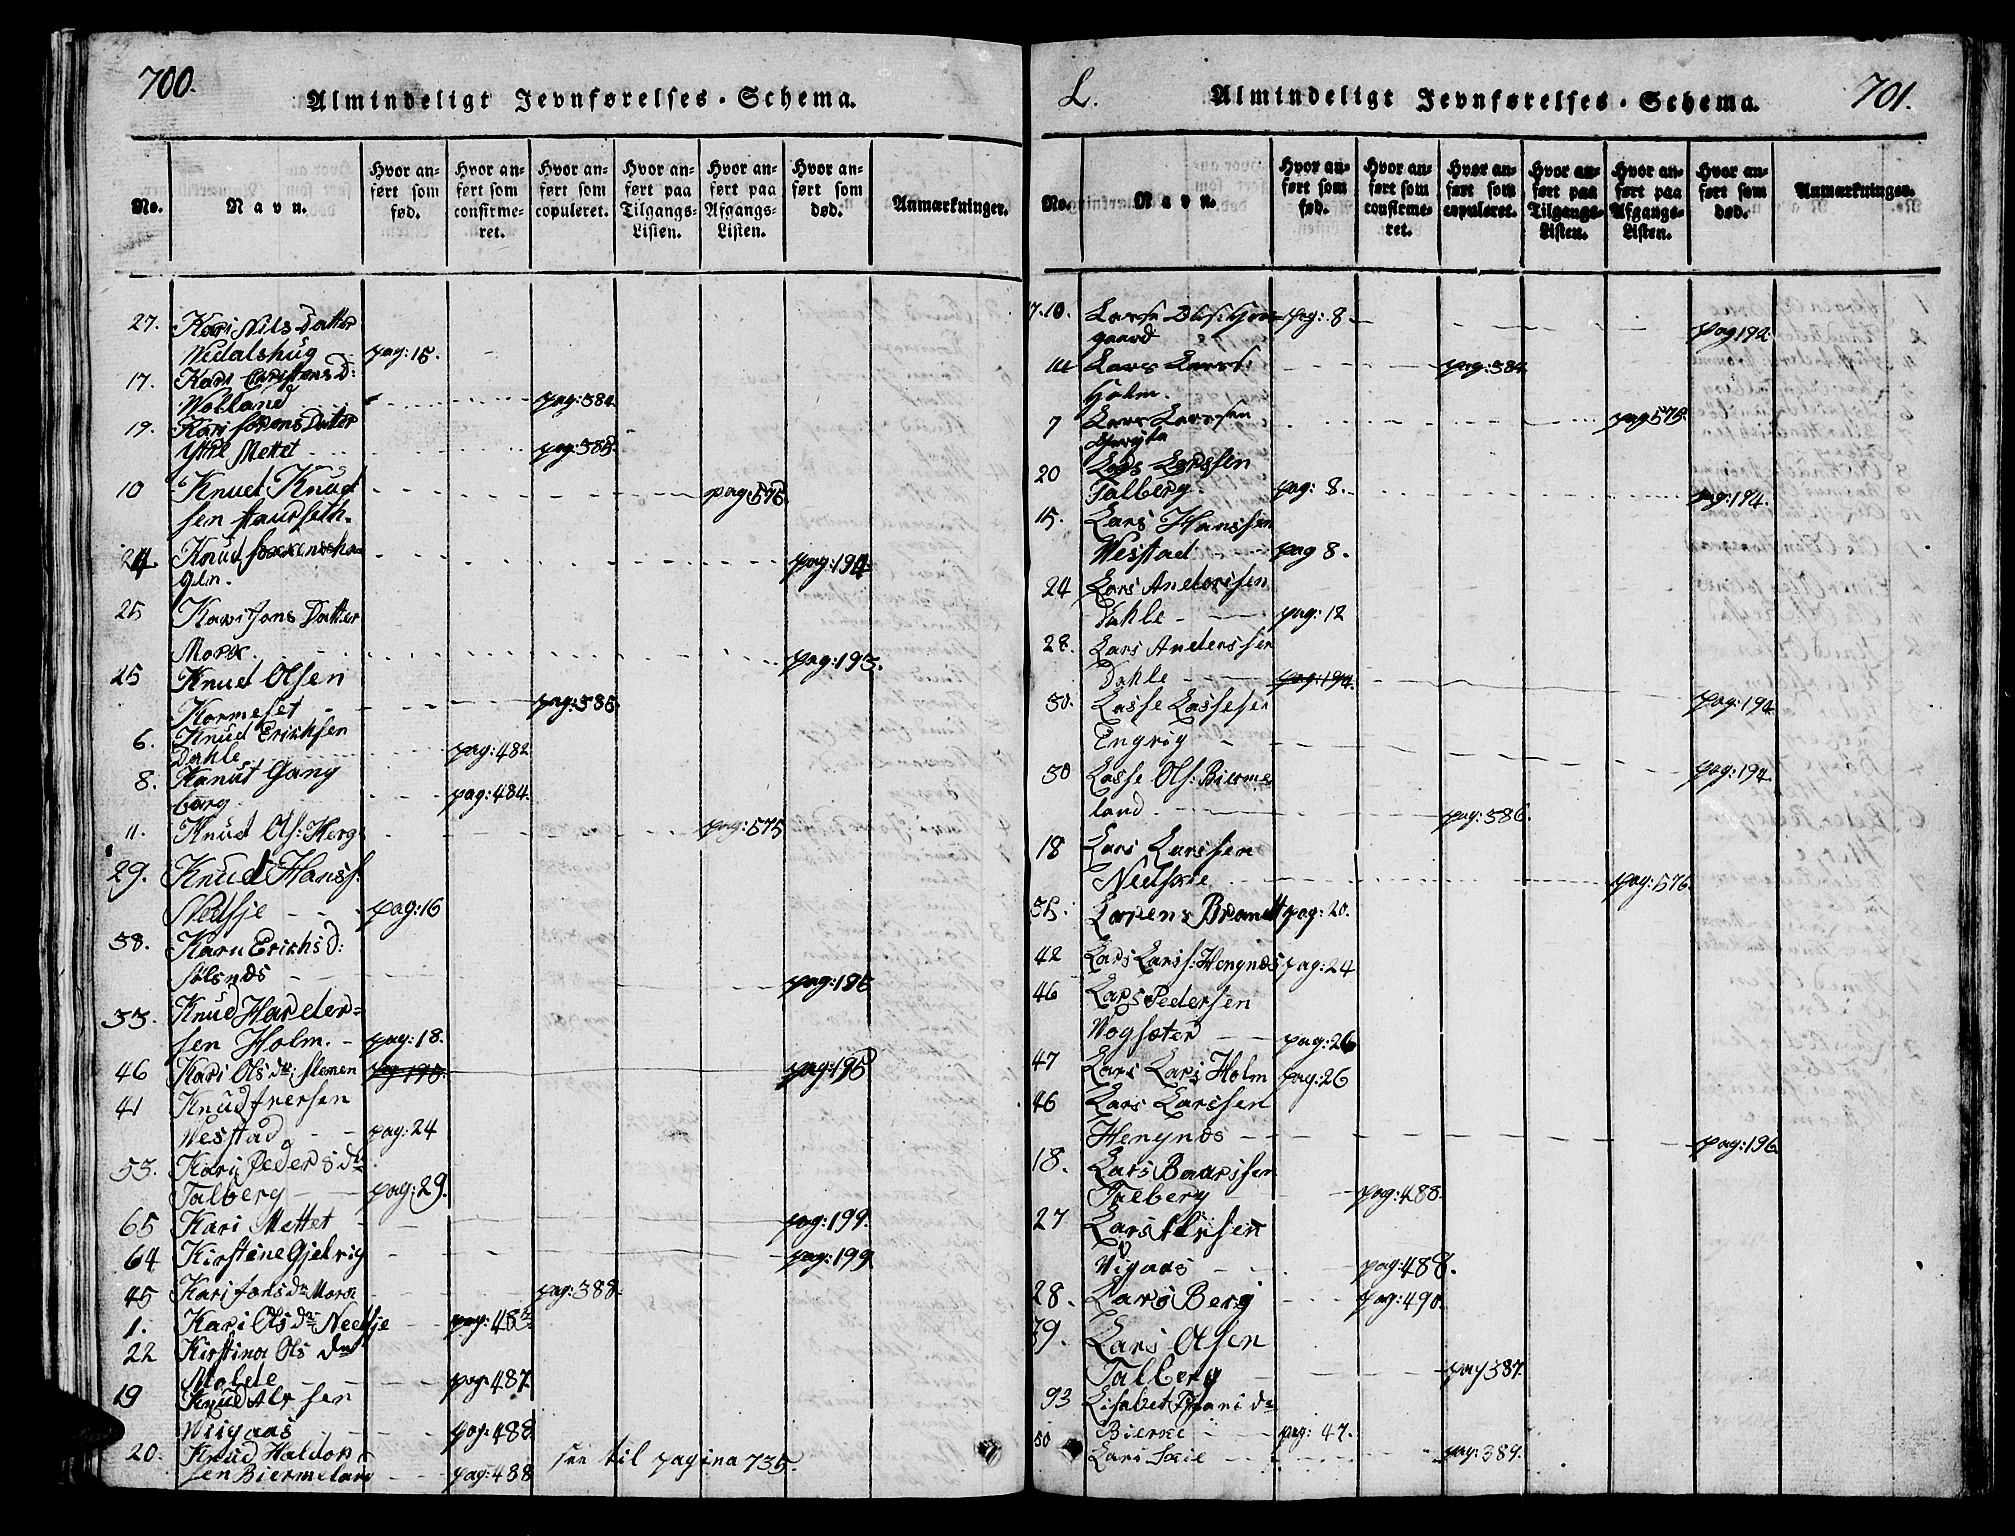 700.
Almindeligt Jevnførelses-Schema.
No.
Navn.
Hvor an-
ført som
fød.
Hvor an-
ført som
confirme-
ret.
Hvor an-
ført som
copuleret.
Hvor an-
ført paa
Tilgangs-
Listen.
Hvor an-
ført paa
Afgangs-
Listen.
Hvor an-
ført som
død.
Anmærkninger.
27. Kari Nils Datter
Nedalshug pag: 15.
17. Kari Christensd:
Wolland pag: 384.
19. Kari Datter
Mettet pag: 385.
10 Knud Knud
sen Staurseth. pag: 575
24 Knud
olm. pag: 194.
25 Kari Jons Datter
Mork. pag: 193.
25 Knud Olsen
Kormeset pag: 385.
6. Knud Erichsen
Dahle pag: 482
8. Kanut Gang
barg pag: 484.
11. Knud Ols: Herg pag: 575
29. Knud Hanss:
Nedsje pag: 16
38. Karu Erichsd:
Solsnes pag: 195
33. Knud Harder=
sen Holm. pag: 18.
46 Kari Olsdr: Slemen pag: 195. pag: 195
41 Knud Iversen
Westad pag: 24
53. Kari Peders dr
Talberg pag: 29.
65 Kari Mettet pag: 199.
64 Kirstine Gjelvig pag: 199
45 Kari Jonsdr Mork pag: 388.
1. Kari Olsdr Nedsje pag: 483.
22 Kirstina Ols dr
Molde pag: 487
19 Knud Alfsen
Wiigaas pag: 488
20. Knud Haldor
sen Biermeland pag: 488 see til pagina 735.
L.
Almindeligt Jevnførelses-Schema.
701.
No.
Navn.
Hvor an-
ført som
fød.
Hvor an-
ført som
confirme-
ret.
Hvor an-
ført som
copuleret.
Hvor an-
ført paa
Tilgangs-
Listen.
Hvor an-
ført paa
Afgangs-
Listen.
Hvor an-
ført som
død.
Anmærkninger.
7.10. Lars Ols: Hom- pag: 8.
gaard pag 194.
14 Lars Larss: pag: 384
Holm.
7 Lars Larssen pag 575.
20 Lars Larssen
Talberg. pag: 8. pag: 194.
15. Lars Hanssen
Westad pag 8.
24 Lars Anderssen
Dahle pag: 12
28. Lars Anderssen
Dahle pag: 194.
30. Lasse Lassesen pag: 194
Engvig
30 Lasse Ols: Bierme pag: 194
land pag: 386.
18 Lars Larssen
Nedsœie pag: 576.
35. Lorens Brandt pag: 20.
42 Lars Larss: Hengnœs pag: 24
46 Lars Pedersen
Wogsœter pag: 26
47 Lars Lars Holm pag: 26
46 Lars Larssen
Hengnœs pag: 196
18. Lars Baarssen
Talberg pag: 488.
27 Lars Alfsen
Vigaas pag: 488.
28. Lars Berg pag: 490.
39. Lars Olsen
Talberg pag 387.
93 Lisabet dr
Bierke pag: 47.
50 Lars Sœie pag: 389.